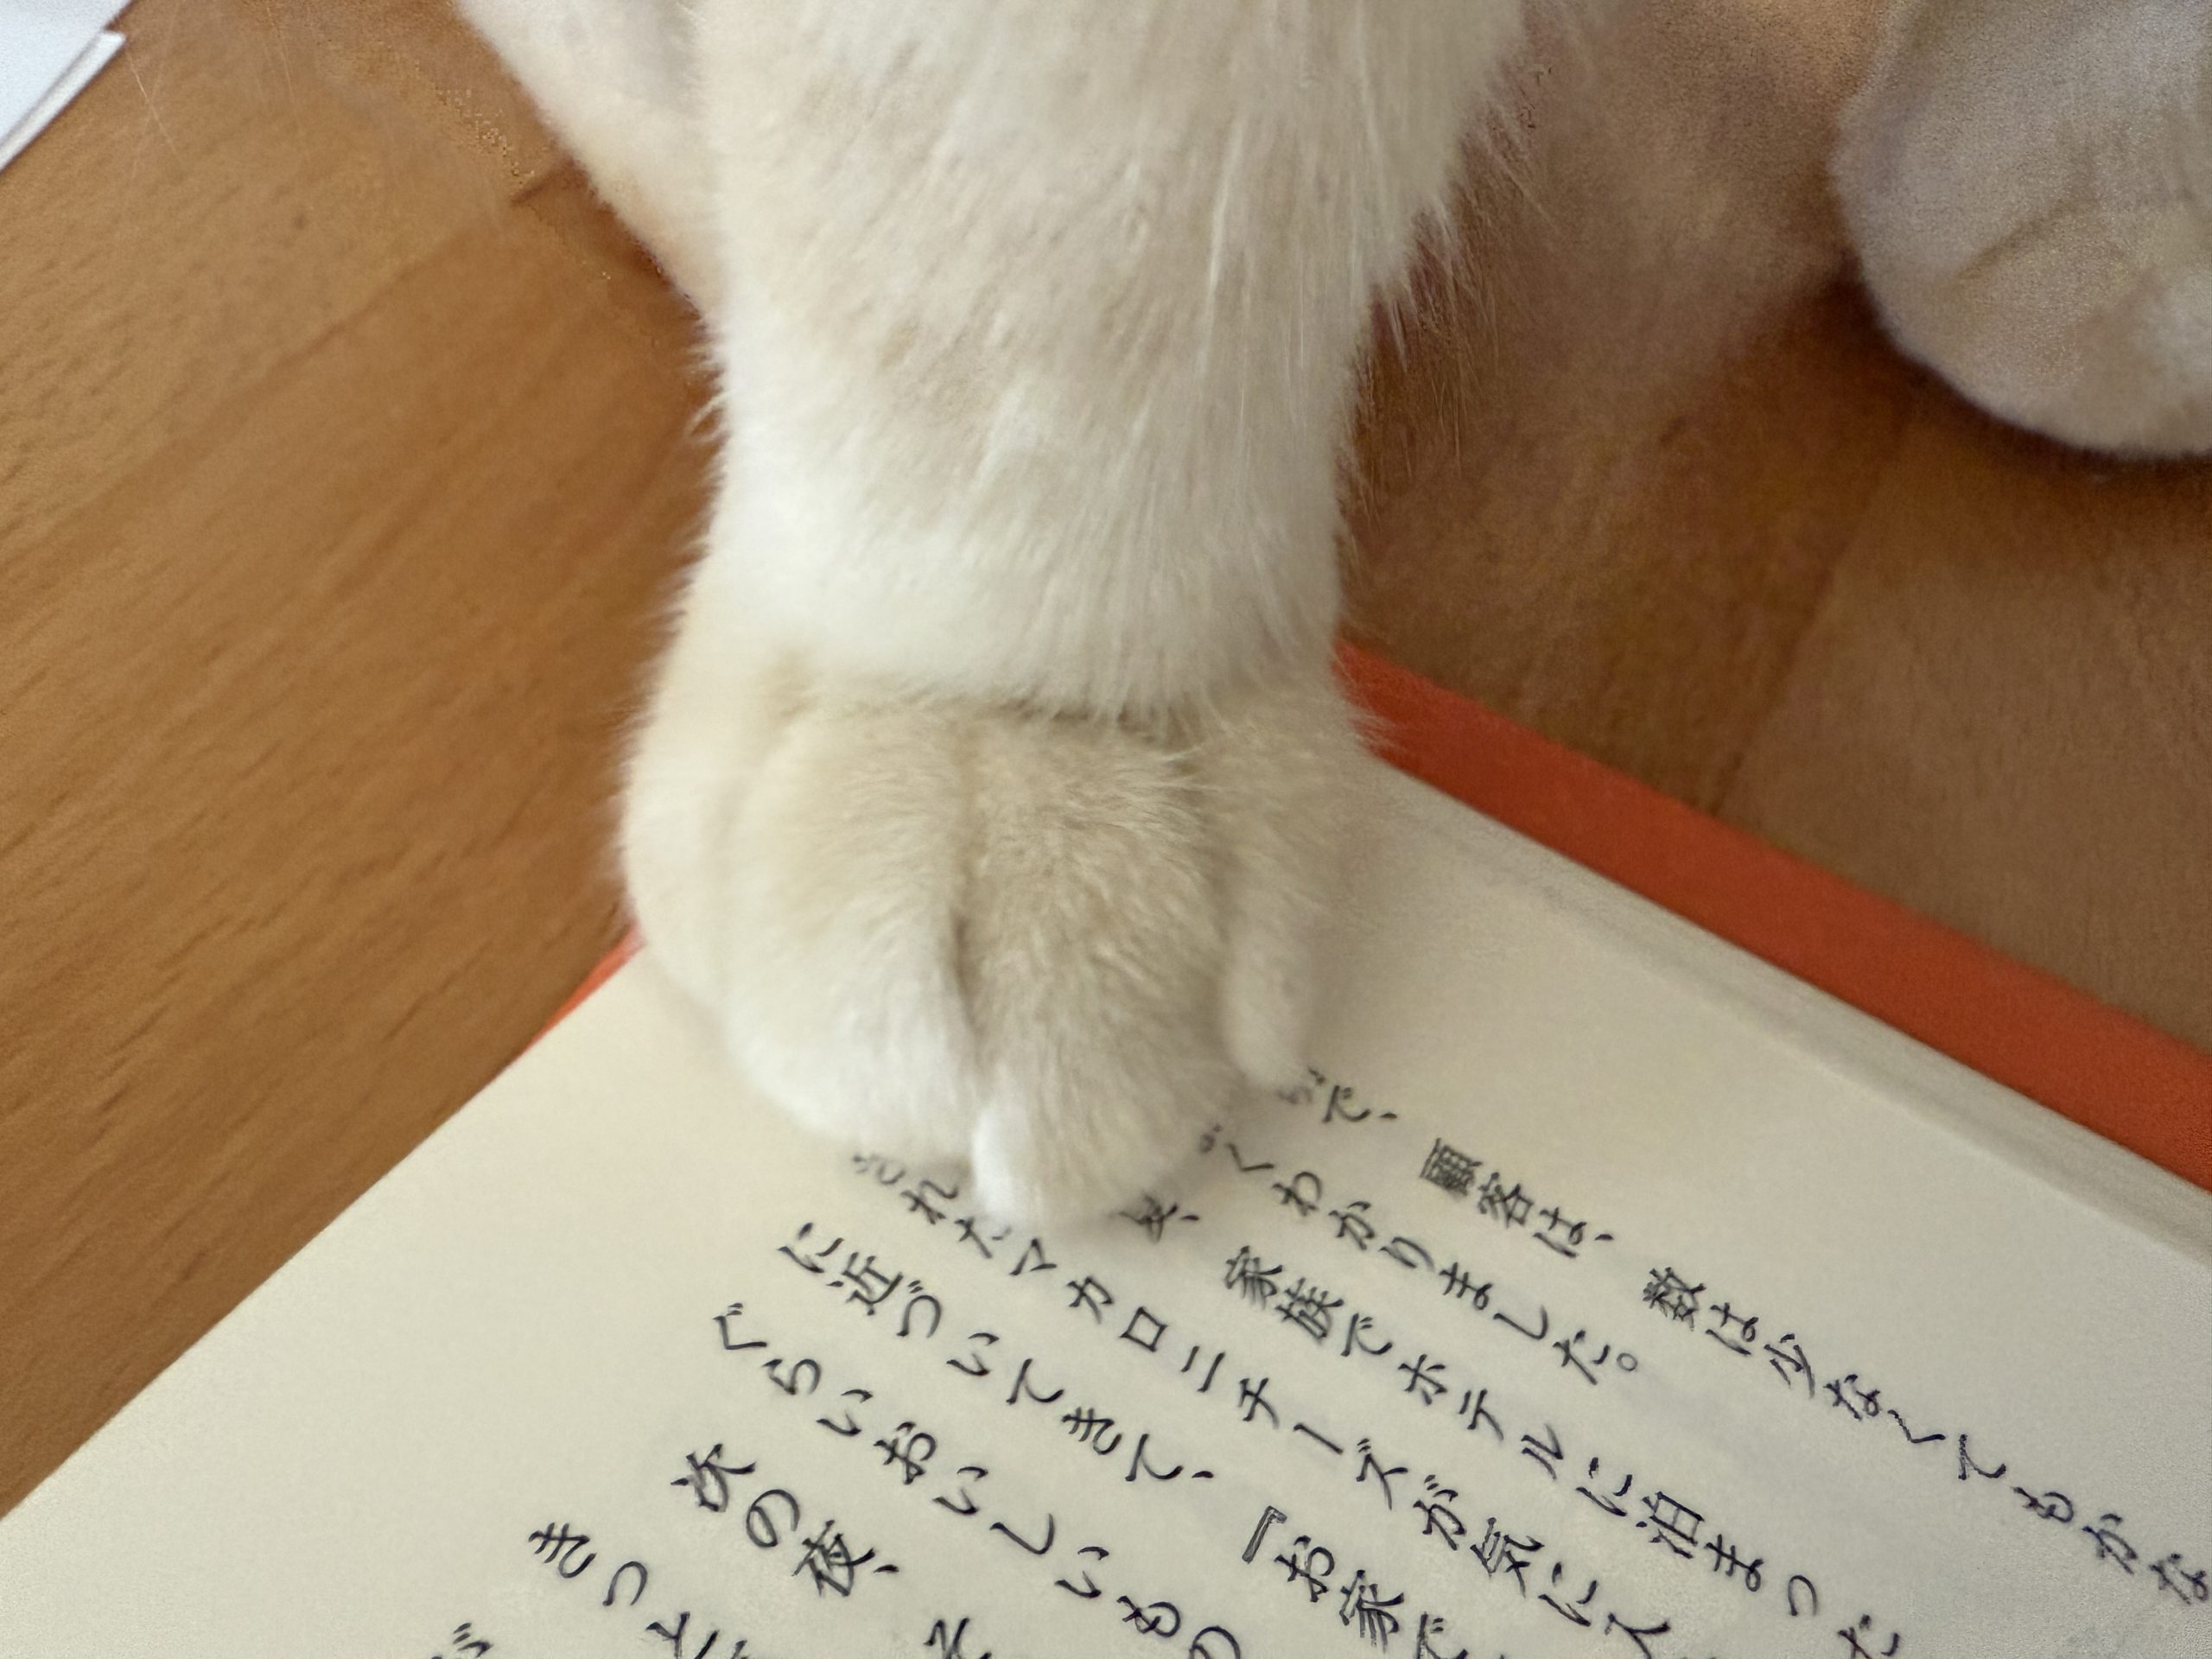 で、顧客は、数は少なくてもかな
くわかりました。
、家族でホテルに泊まった
れたマカロニチーズが気に入
に近づいてきて、『お家で
ぐらいおいしいもの
次の夜、そ
きっと
が